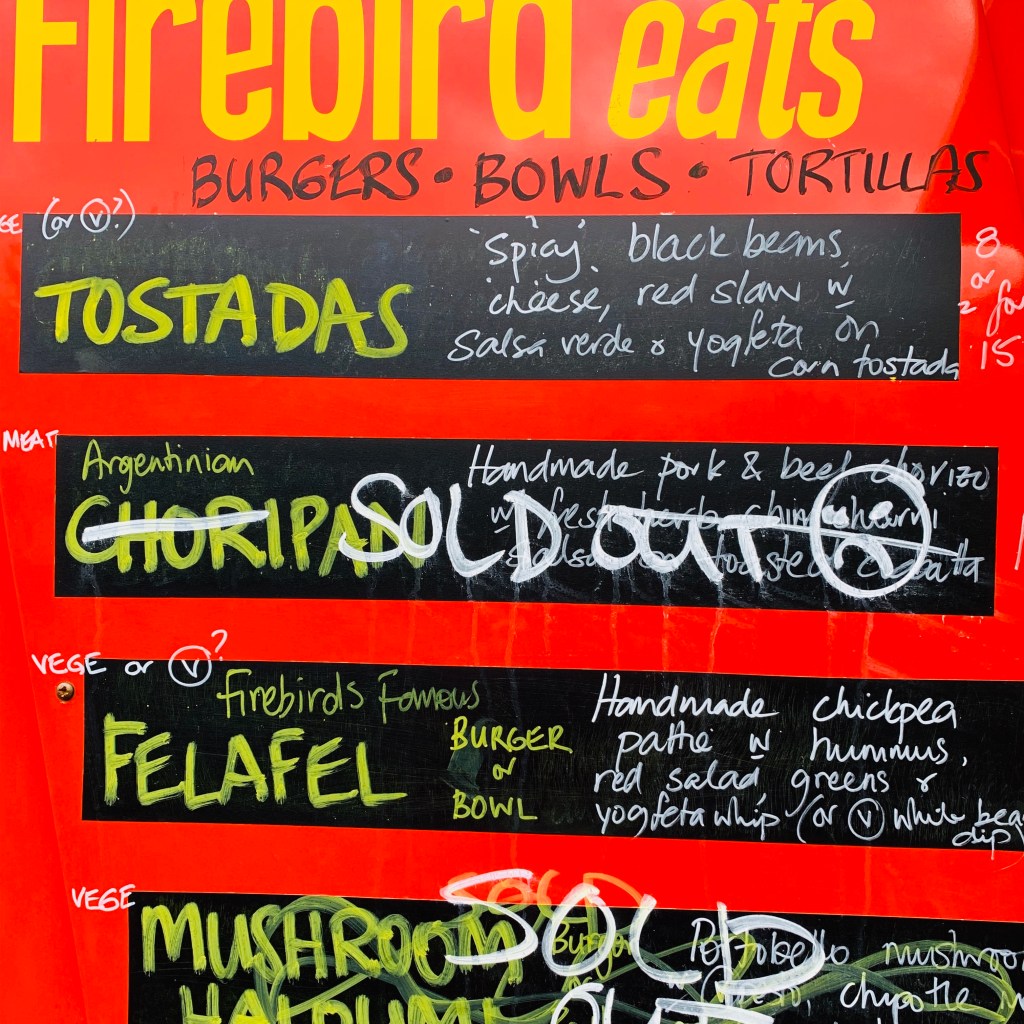 Firebird eats
BURGERS • BOWLS • TORTILLAS
(or V?)
TOSTADAS
spicy black beans,
cheese, red slaw w
salsa verde & yogfeta on
corn tostada
8
or
2 for
15
MEAT
Argentinian
CHORIPAN
SOLD OUT
Handmade pork & beef chorizo
w fresh herb chimichurri
salsa on toasted ciabatta
VEGE or V?
Firebirds Famous
FELAFEL
BURGER
or
BOWL
Handmade chickpea
pattie w hummus,
red salad, greens &
yogfeta whip (or V white bean
dip)
VEGE
MUSHROOM
HALOUMI
Burger
SOLD
OUT
Portobello mushroo
pesto, chypotle